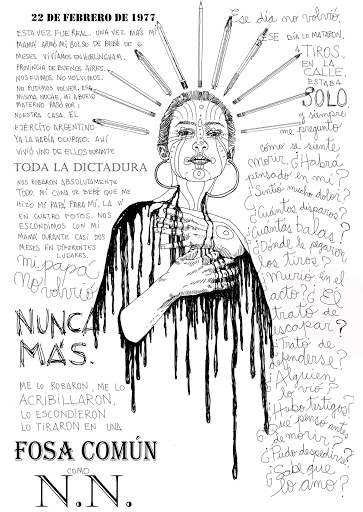 22 DE FEBRERO DE 1977
ESTA VEZ FUE REAL. UNA VEZ MÁS MI
MAMÁ ARMÓ MI BOLSO DE BEBÉ DE 6
MESES. VIVÍAMOS EN HURLINGHAM,
PROVINCIA DE BUENOS AIRES.
NOS FUIMOS. NO VOLVIMOS.
NO PUDIMOS VOLVER. ESA
MISMA NOCHE, MI ABUELO
MATERNO PASÓ POR
NUESTRA CASA. EL
EJÉRCITO ARGENTINO
YA LA HABÍA OCUPADO. AHÍ
VIVIÓ UNO DE ELLOS DURANTE
TODA LA DICTADURA
NOS ROBARON ABSOLUTAMENTE
TODO, MI CUNA DE BEBÉ QUE ME
HIZO MI PAPÁ PARA MÍ, LA VÍ
EN CUATRO FOTOS. NOS
ESCONDIMOS CON MI
MAMÁ DURANTE CASI DOS
MESES EN DIFERENTES
LUGARES.
mi papá
no volvió
NUNCA
MÁS.
ME LO ROBARON, ME LO
ACRIBILLARON,
LO ESCONDIERON,
LO TIRARON EN UNA
FOSA COMÚN
COMO
N.N.
Ese día no volvió.
ESE DÍA LO MATARON.
A TIROS.
EN LA
CALLE.
ESTABA
SOLO.
y siempre
me pregunto
cómo se siente
morir. ¿Habrá
pensado en mí?
¿Sintió mucho dolor?
¿Cuántos disparos?
¿Cuántas balas?
¿Dónde le pegaron
los tiros?
¿Murió en el
acto? ¿El
trató de
escapar?
¿Trató de
defenderse?
¿Alguien
lo vio?
¿Hubo testigos?
¿Qué pensó antes
de morir?
¿Pudo despedirse?
¿Sabe que
lo amo?